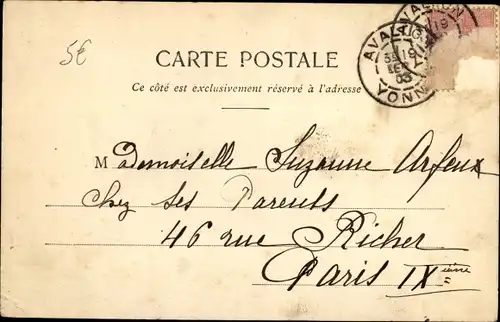 5€
CARTE POSTALE
Ce côté est exclusivement réservé à l'adresse
AVALLON
19
03
YONNE
Mademoiselle Suzanne Arfeux
chez ses Parents
46 rue Richer
Paris IXeme